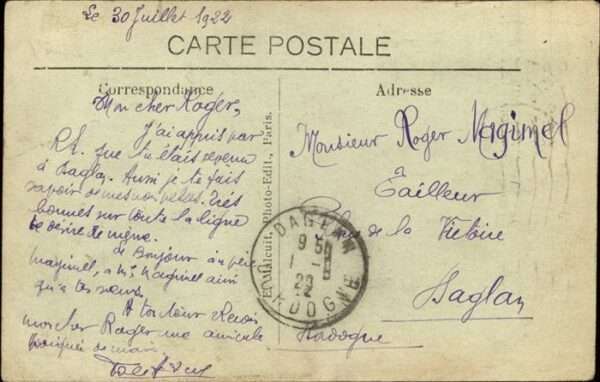 Le 30 Juillet 1922
CARTE POSTALE
Correspondance
Mon cher Roger,
J'ai appris par
R.L. que tu étais revenu
à Daglan. Aussi je te fais
savoir de mes nouvelles. Très
bonnes sur toute la ligne
je désire de même.
Bonjour à
Magimel, à Mme Magimel ainsi
qu'à tes sœurs.
A ton tour Reçois
mon cher Roger une amicale
poignée de main
E. Malcuit, Photo-Edit., Paris.
Adresse
Monsieur Roger Magimel
Tailleur
Place de la Victoire
Daglan
Dadogne
DAGLAN
9 30
1 - 8
22
DORDOGNE